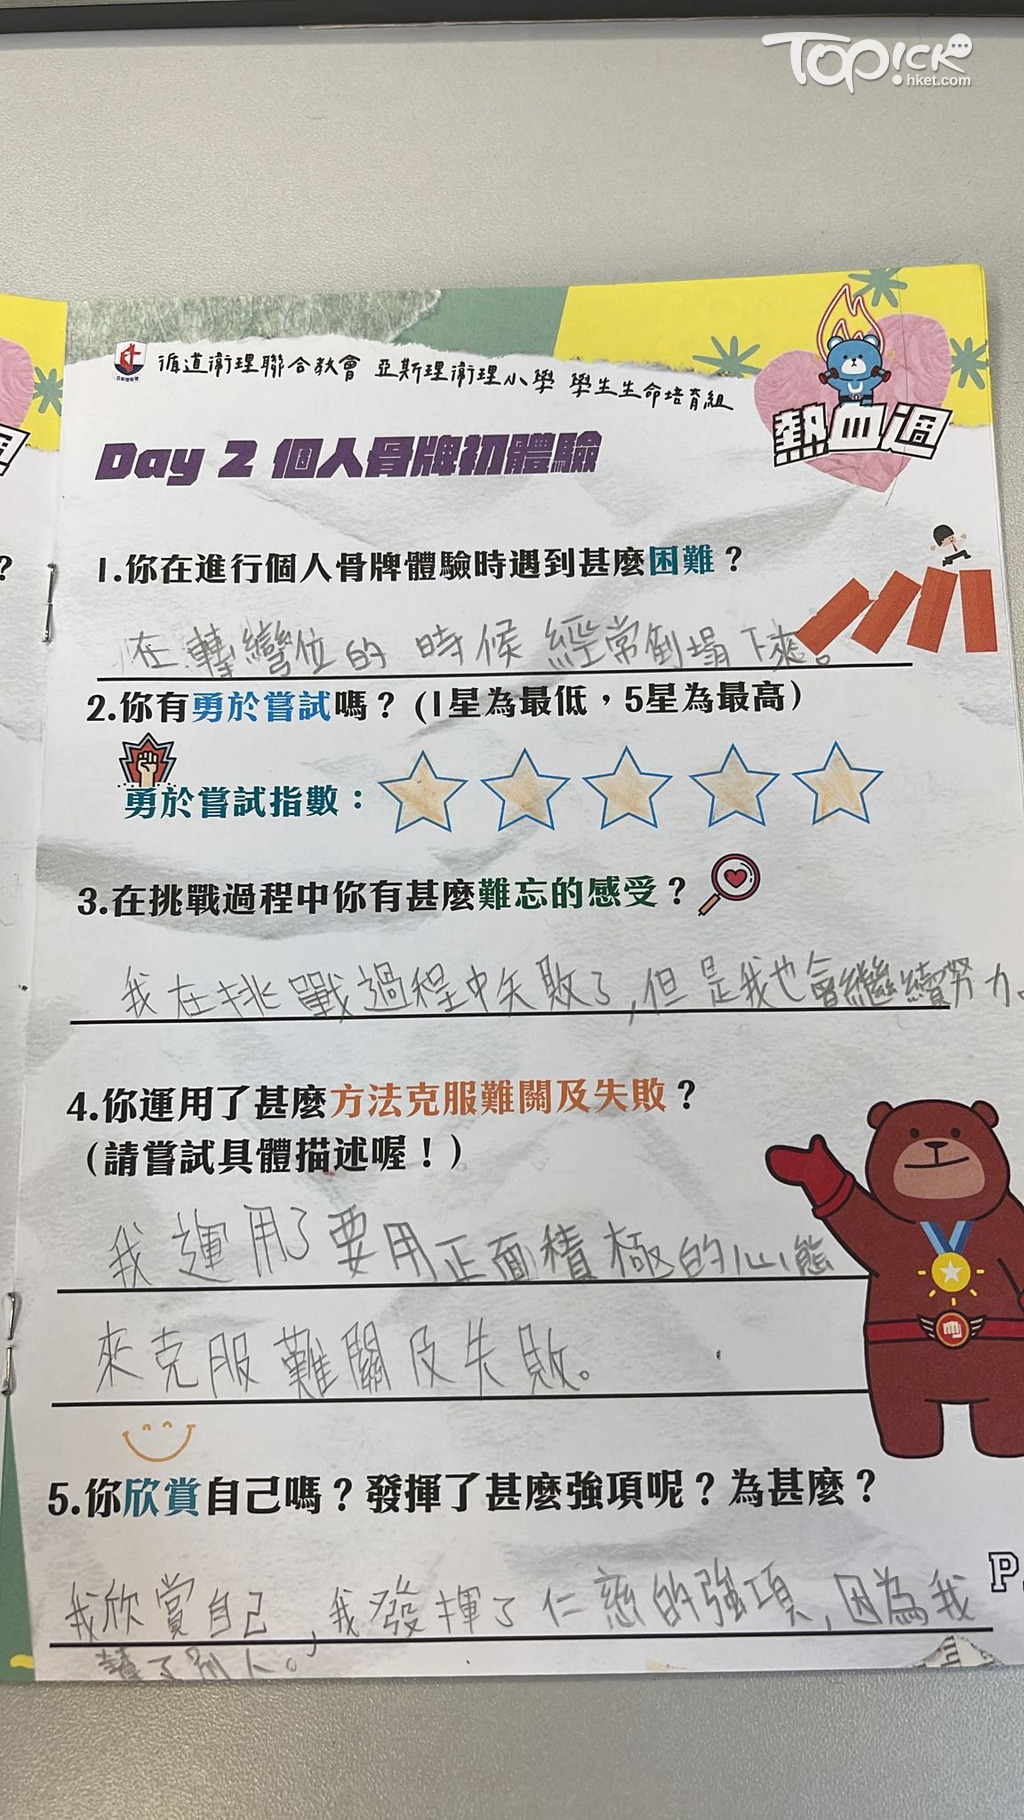 TOPick
hket.com
循道衞理聯合教會 亞斯理衞理小學 學生生命培育組
熱血週
Day 2 個人骨牌初體驗
1.你在進行個人骨牌體驗時遇到甚麼困難？
在轉彎位的時候經常倒塌下來。
2.你有勇於嘗試嗎？(1星為最低，5星為最高)
勇於嘗試指數：
3.在挑戰過程中你有甚麼難忘的感受？
我在挑戰過程中失敗了,但是我也會繼續努力。
4.你運用了甚麼方法克服難關及失敗？
(請嘗試具體描述喔！)
我運用了要用正面積極的心態
來克服難關及失敗。
5.你欣賞自己嗎？發揮了甚麼強項呢？為甚麼？
P.
我欣賞自己,我發揮了仁慈的強項,因為我
了別人。